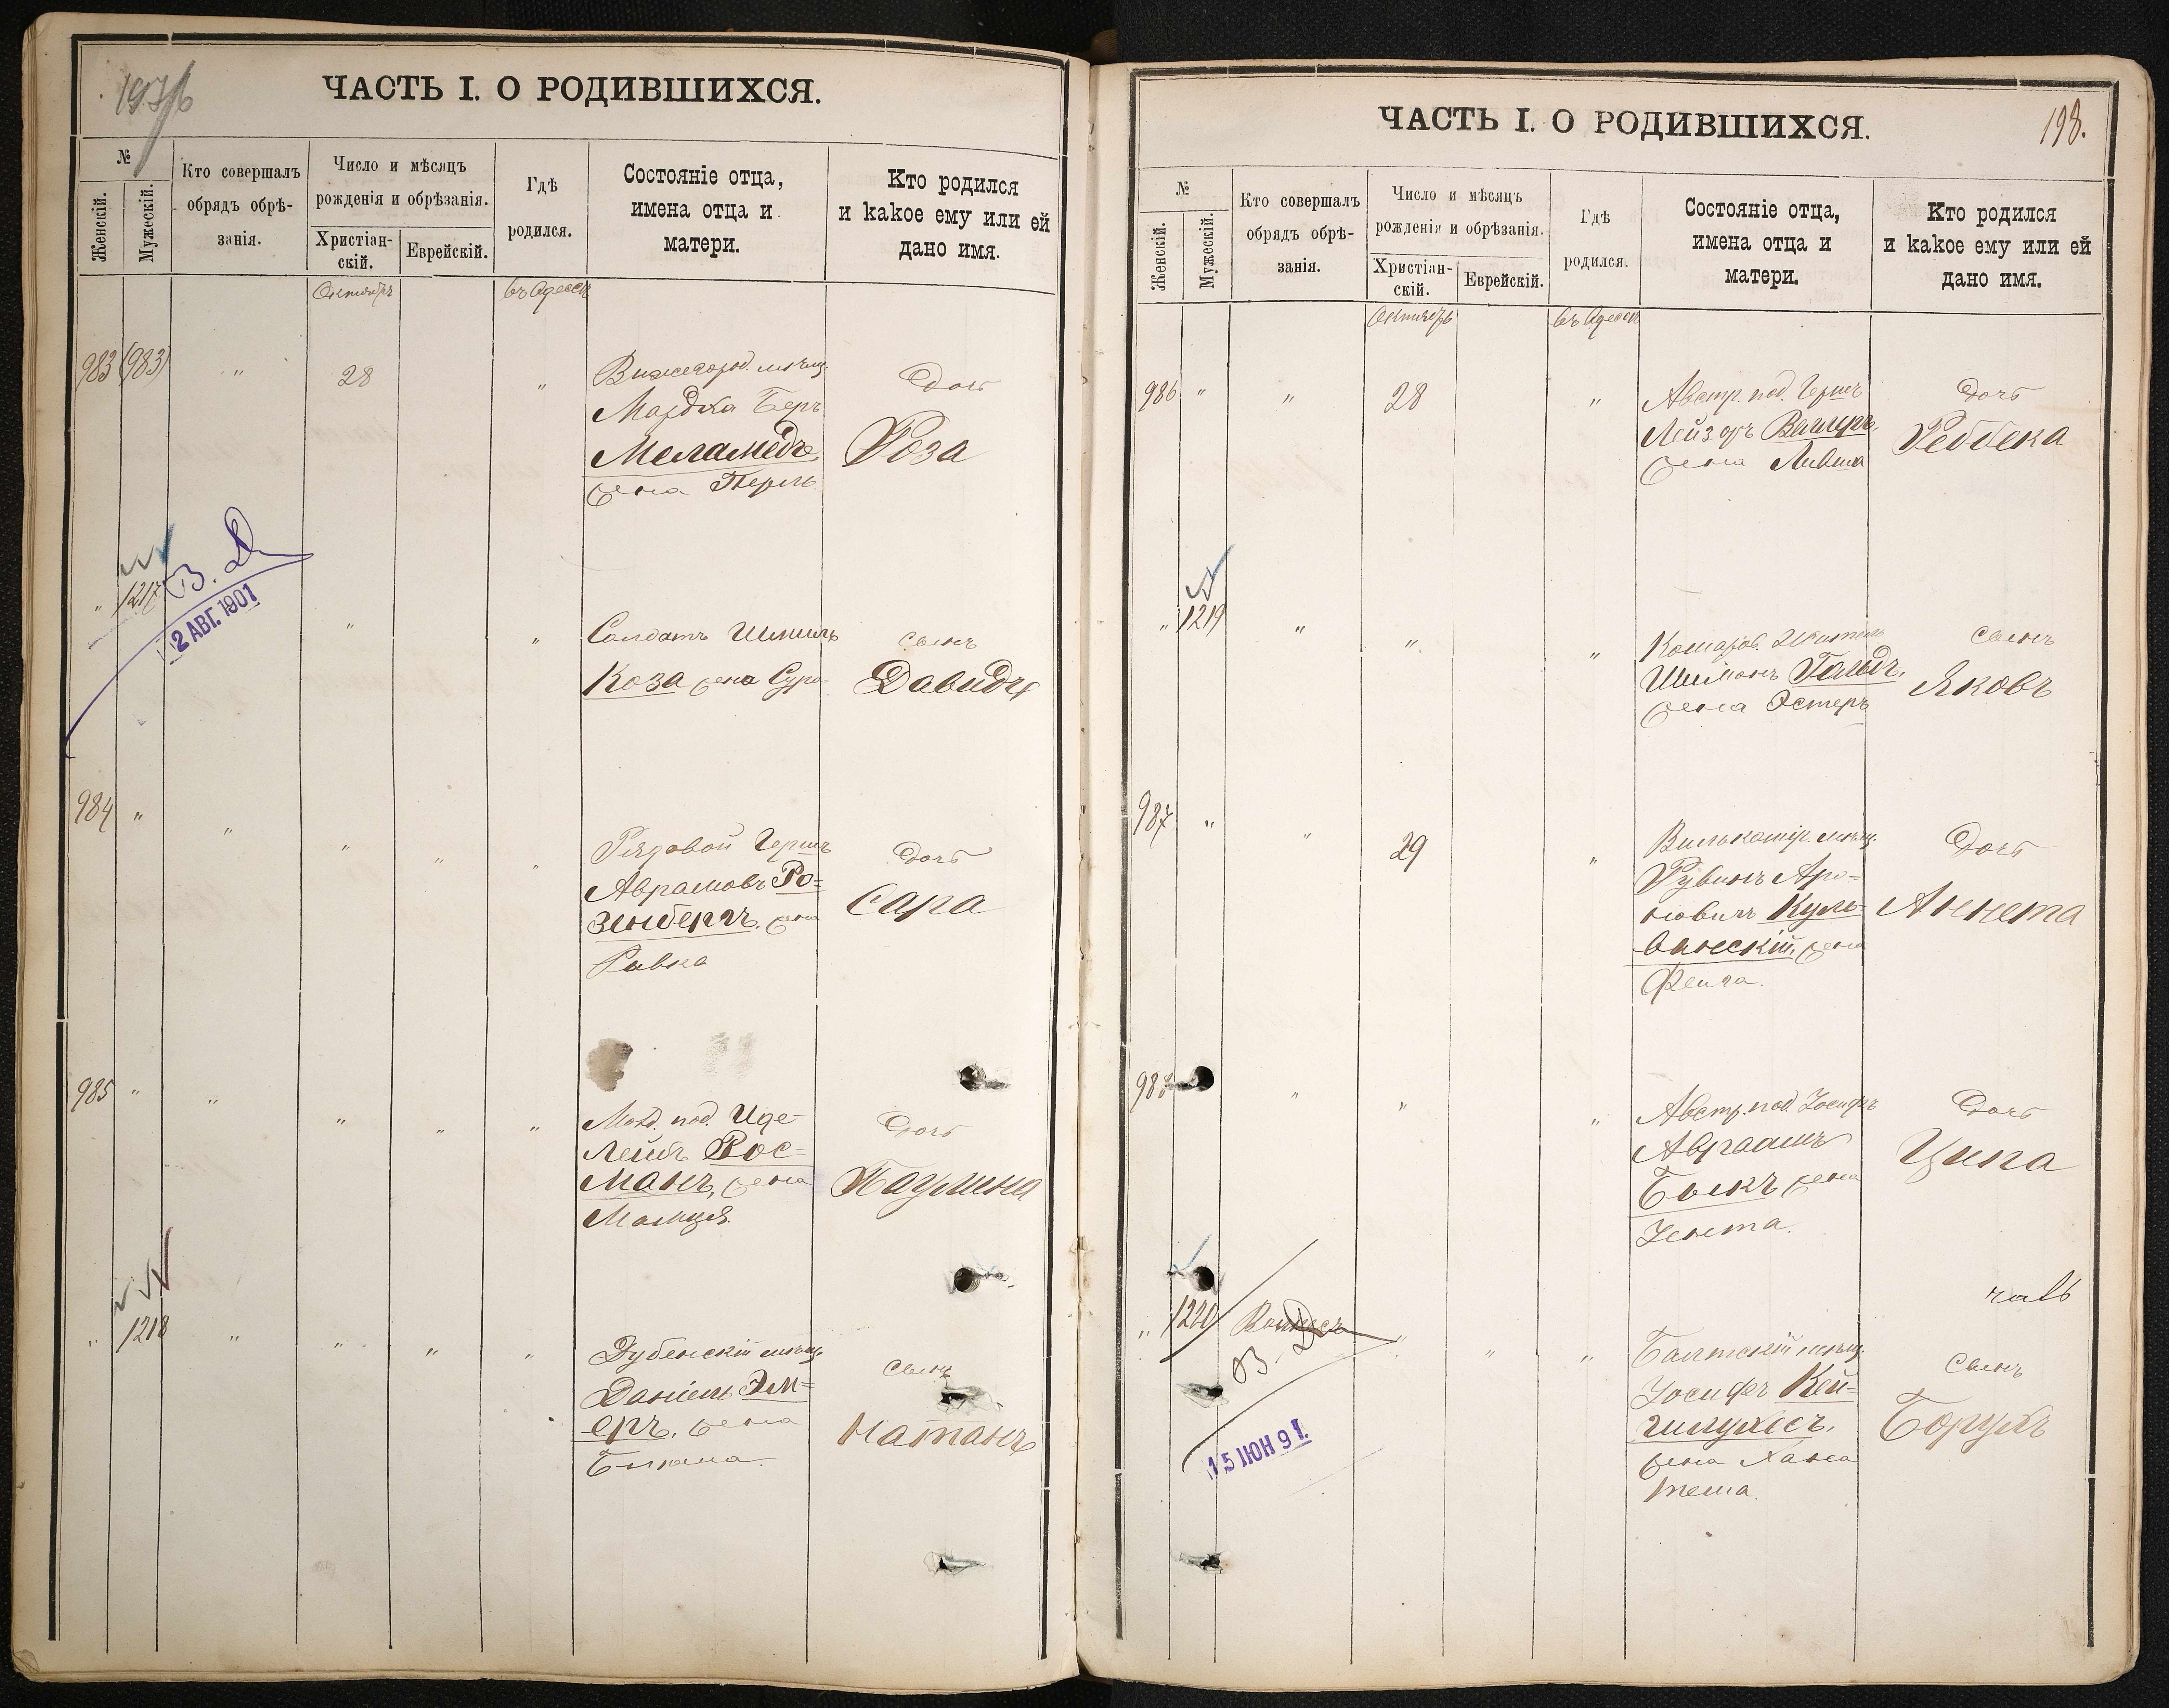 ЧАСТЬ I. О РОДИВШИХСЯ.
№
Женскій.
Мужескій.
Кто совершалъ
обрядъ обрѣ-
занія.
Число и мѣсяцъ
рожденія и обрѣзанія.
Христіан-
скій.
Еврейскій.
Гдѣ
родился.
Состояніе отца,
имена отца и
матери.
Кто родился
и какое ему или ей
дано имя.
Октябрь
въ Одессѣ
983 (983) " 28 "
мѣщ.
Беръ
Меламедъ,
жена Перль
Дочь
Роза
В. Д.
2 АВГ. 1901
" 1217 " "
Солдатъ Шмиль
Коза жена Сура
сынъ
Давидъ
984 " " " " "
Рядовой Гершъ
Аврамовъ Ро=
зенбергъ, жена
Ривка
Дочь
Сара
985 " " " " "
под. Иде-
Лейбъ Рос=
манъ, жена
Дочь
" 1218 " " " "
Дубенскій мѣщ.
Даніель
жена
сынъ
Натанъ
ЧАСТЬ I. О РОДИВШИХСЯ.
198.
№
Женскій.
Мужескій.
Кто совершалъ
обрядъ обрѣ-
занія.
Число и мѣсяцъ
рожденія и обрѣзанія.
Христіан-
скій.
Еврейскій.
Гдѣ
родился.
Состояніе отца,
имена отца и
матери.
Кто родился
и какое ему или ей
дано имя.
Октябрь
въ Одессѣ
986 " " 28 "
Австр. под. Гершъ
Лейзоръ
жена Ливша
Дочь
Реббека
" 1219 " " "
Шимонъ Гольдъ,
жена Эстеръ
сынъ
Яковъ
987 " " 29 "
Вилькомір. мѣщ.
Рувинъ Аро=
новичъ Куль-
ванскій, жена
Фейга.
Дочь
Аннета
988 " " "
Австр. под. Іосифъ
Авраамъ
Быкъ жена
Зента.
Дочь
Ципа
" 1220 " " "
В. Д.
15 ІЮН 91.
Балтскій мѣщ.
Іосифъ
жена Хана
сынъ
Борухъ